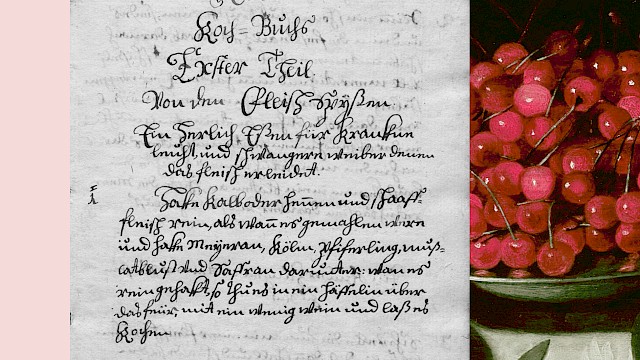 Koch=Buchs
Erster Theil.
Von den Fleisch Speyßen
Ein herlich Eßen für Krankne
leuht, und schwangere weiber denen
das fleisch erleidet.
1
Hakke Kalb oder hennen und schaaff=
fleisch rein, als wan es gemahlen were
und hakke Meyeran, Köhm, Pfiferling, mus=
catblust und Saffran darunter: wan es
rein gehakt, so thu es in ein häffelin über
das feür, mit ein wenig wein und laß es
Kochen